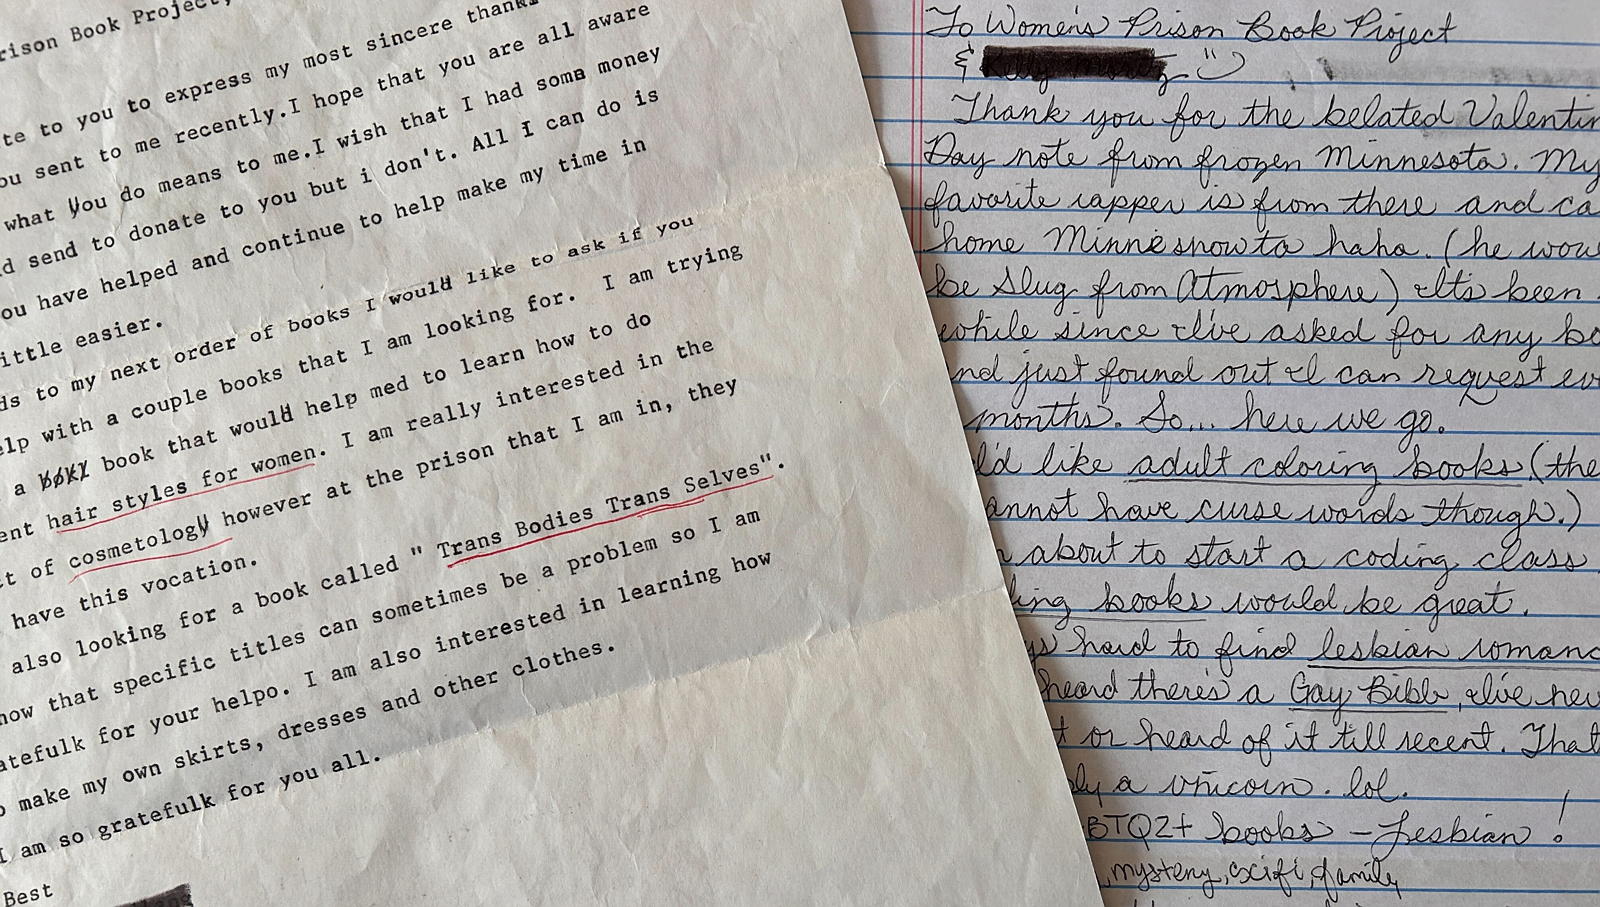 rison Book Project,
te to you to express my most sincere thank
ou sent to me recently.I hope that you are all aware
what you do means to me.I wish that I had some money
d send to donate to you but i don't. All I can do is
ou have helped and continue to help make my time in
ittle easier.
ds to my next order of books I would like to ask if you
elp with a couple books that I am looking for. I am trying
a book that would help med to learn how to do
ent hair styles for women. I am really interested in the
ct of cosmetology however at the prison that I am in, they
have this vocation.
also looking for a book called " Trans Bodies Trans Selves".
now that specific titles can sometimes be a problem so I am
atefulk for your helpo. I am also interested in learning how
o make my own skirts, dresses and other clothes.
I am so gratefulk for you all.
Best
To Women's Prison Book Project
&
Thank you for the belated Valentin
Day note from frozen Minnesota. My
favorite rapper is from there and ca
home Minnesnowta haha. (he wou
be Slug from Atmosphere) It's been
while since I've asked for any bo
nd just found out I can request ev
months. So... here we go.
ld like adult coloring books (the
annot have curse words though.)
about to start a coding class
ing books would be great.
ys hard to find lesbian romanc
heard there's a Gay Bible, I've nev
t or heard of it till recent. That
ly a unicorn. lol.
BTQ2+ books - Lesbian!
mystery, scifi, family